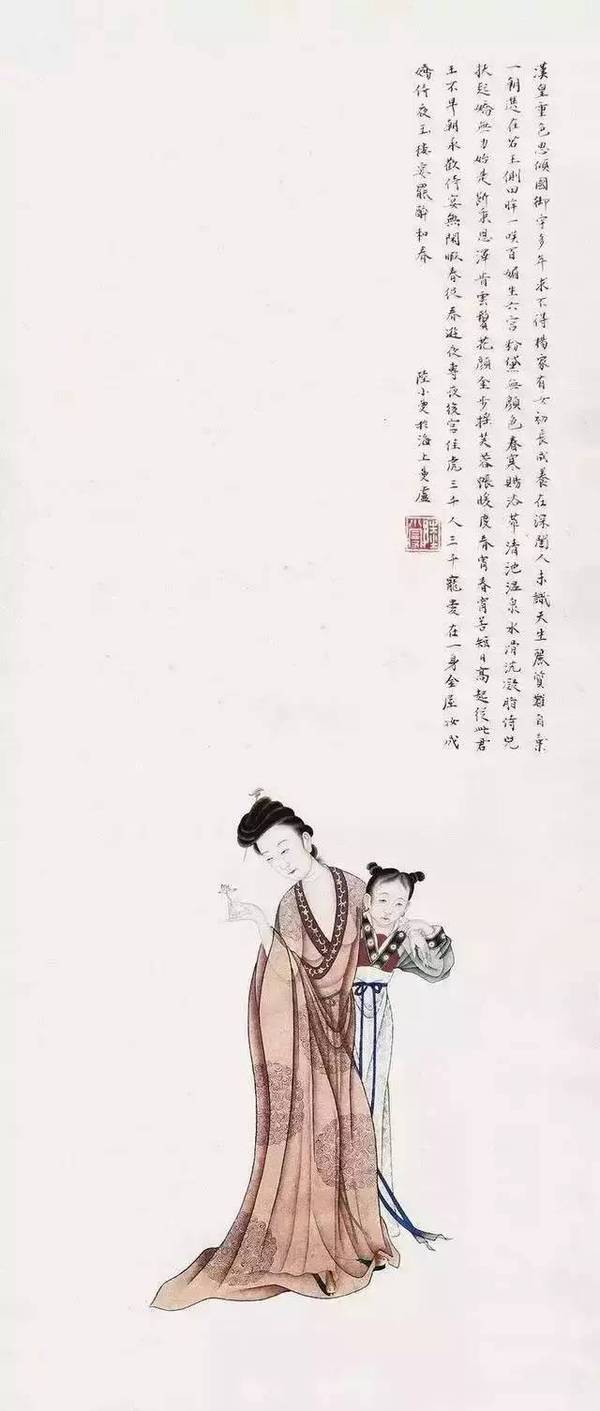 漢皇重色思傾國御宇多年求不得楊家有女初長成養在深閨人未識天生麗質難自棄
一朝選在君王側囬眸一咲百媚生六宮粉黛無顏色春寒賜浴華清池温泉水滑洗凝脂侍兒
扶起嬌無力始是新承恩澤旹雲鬢花顏金步搖芙蓉帳暖度春宵春宵苦短日高起從此君
王不早朝承歡侍宴無閑暇春從春遊夜專夜後宮佳麗三千人三千寵愛在一身金屋妝成
嬌侍夜玉樓宴罷醉和春
陸小曼於海上曼廬